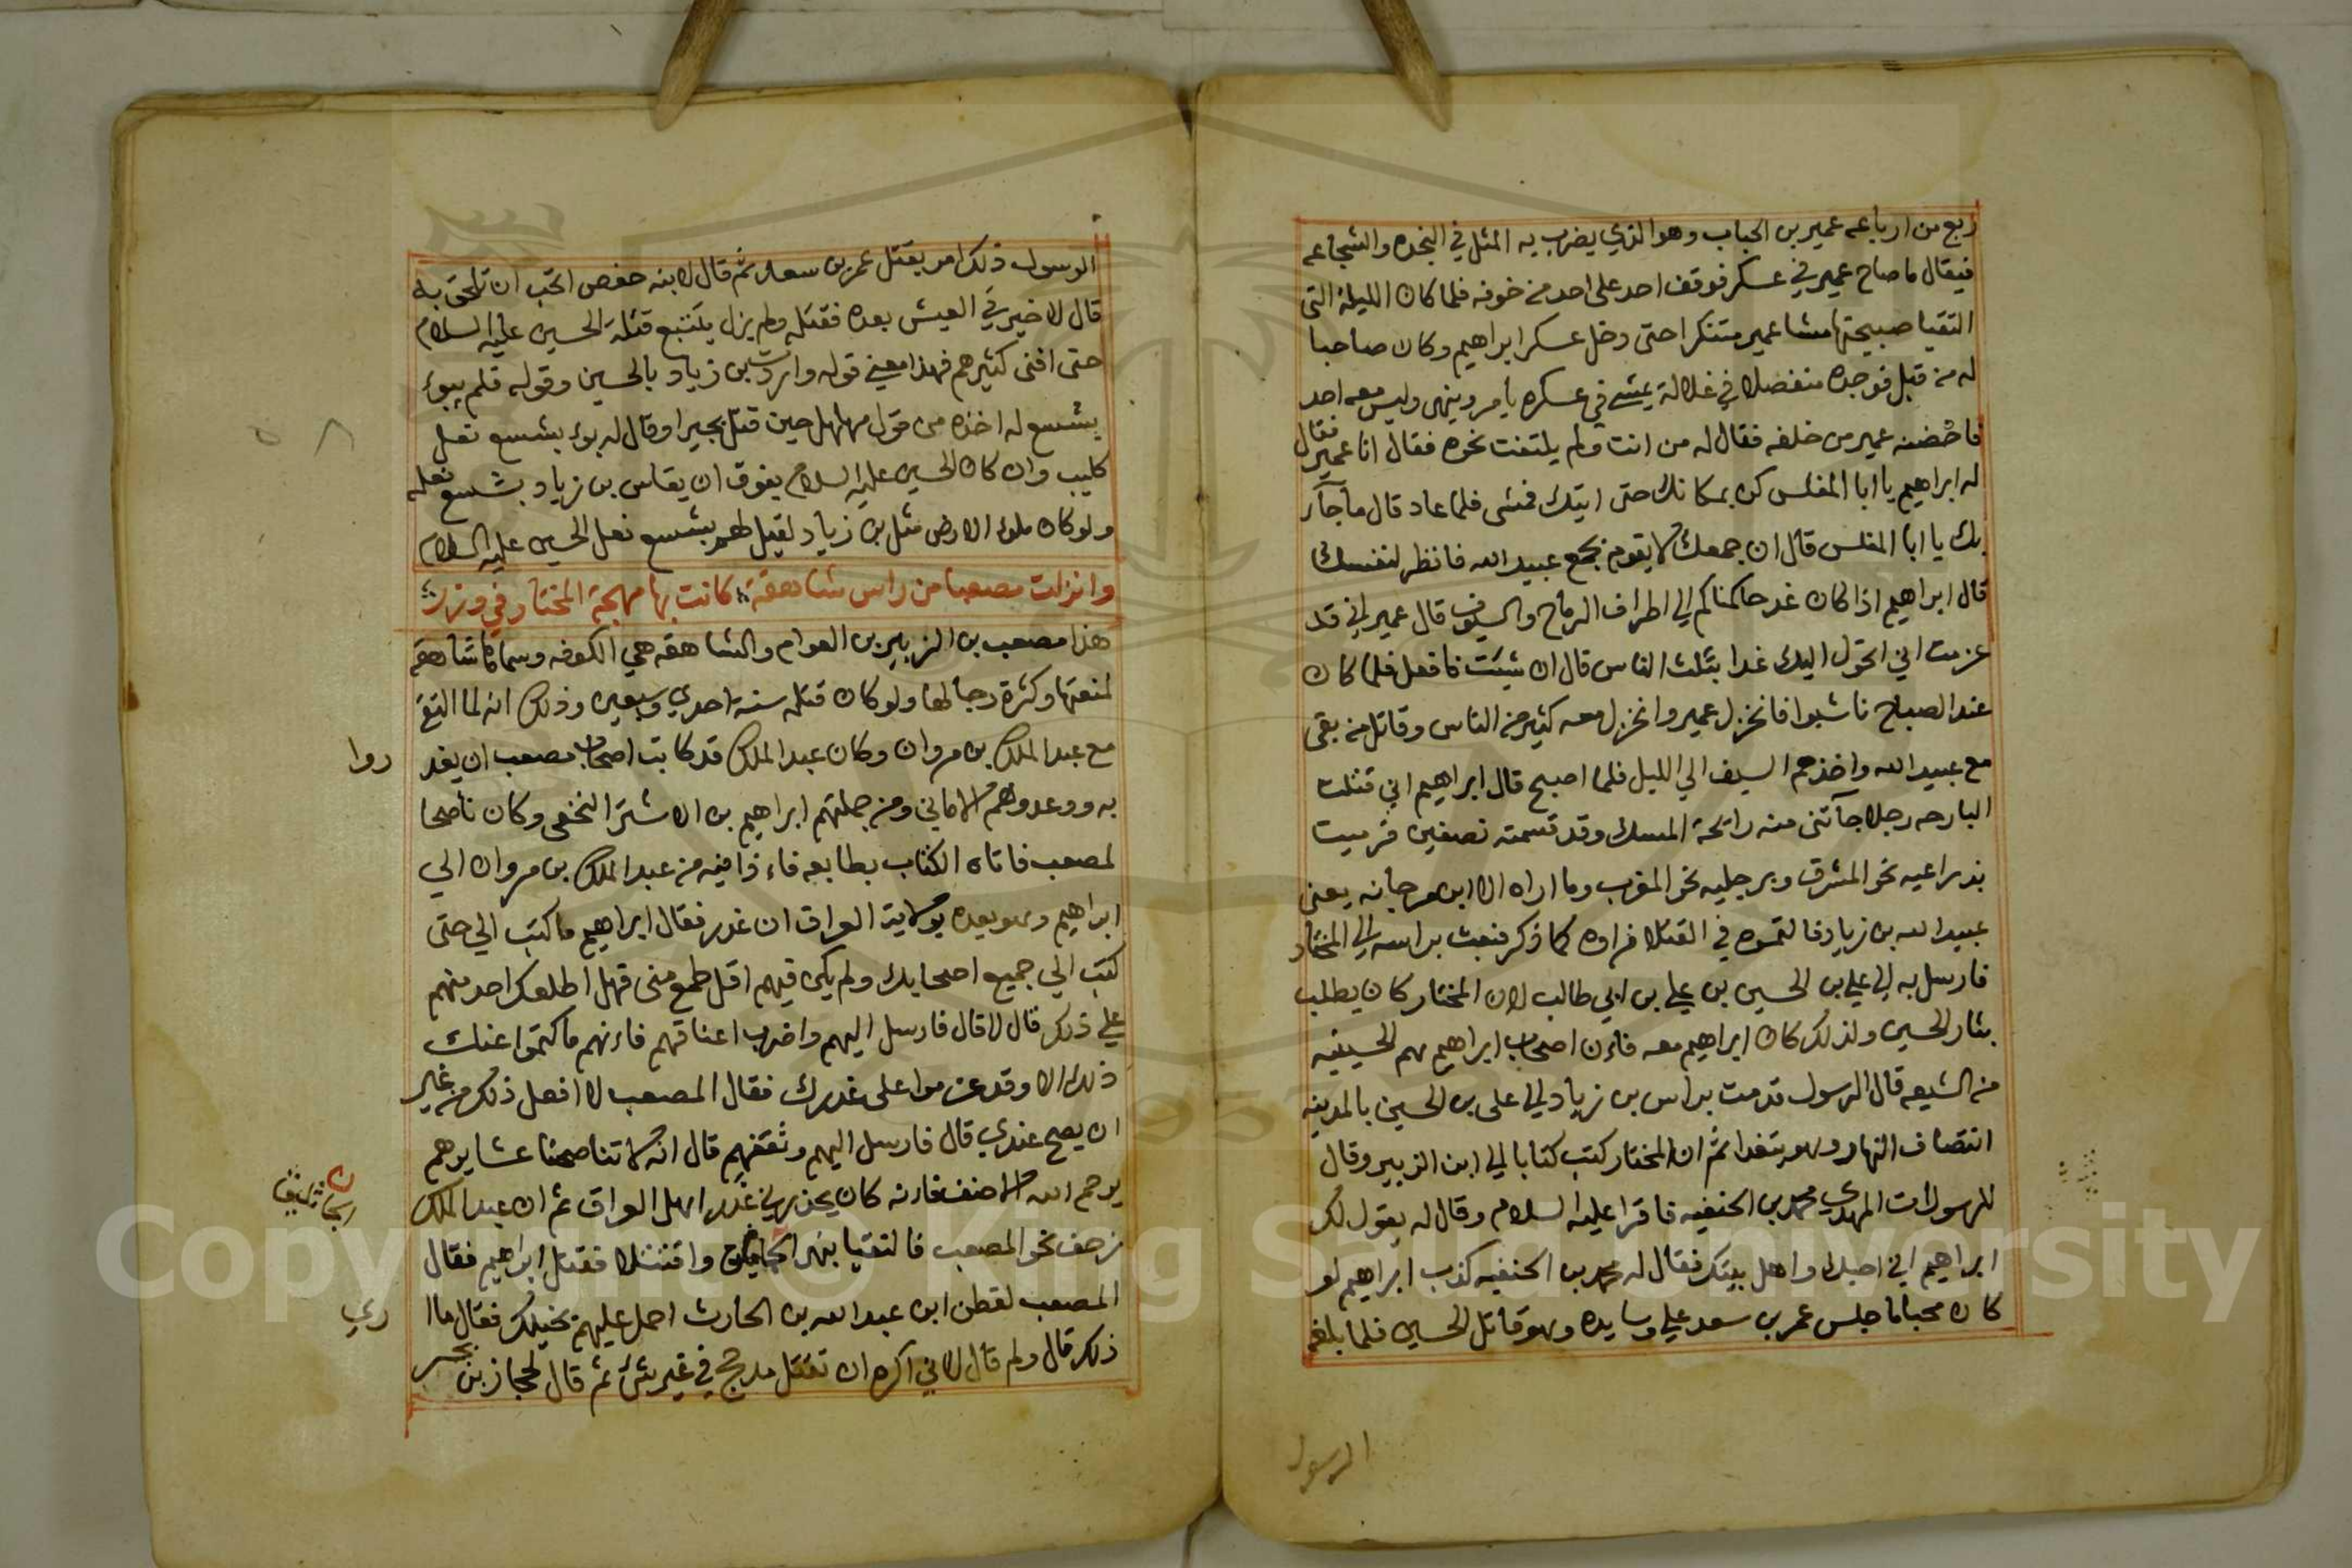 ربع من ارباعه عمير بن الحباب وهو الذي يضرب به المثل في النجده والشجاعه
فيقال ما صاح عمير في عسكر فوقف احد على احد من خوفه فلما كان الليلة التي
التقيا صبيحتها مشا عمير متنكرا حتى دخل عسكر ابراهيم وكان صاحبا
له من قبل فوجده متفصلا في غلالة يمشي في عسكره يأمر وينهى وليس معه احد
فاحضنه عمير من خلفه فقال له من انت ولم يلتفت نحوه فقال انا عمير فقال
له ابراهيم يا ابا المغلس كن بمكانك حتى اتيك فمشى فلما عاد قال ما جآء
بك يا ابا المغلس قال ان جمعك لا يقوم بجمع عبيد الله فانظر لنفسك
قال ابراهيم اذا كان غد حاكمناكم الي اطراف الرماح والسيوف قال عمير اني قد
عزمت اني اتحول اليك غدا بثلث الناس قال ان شيت فافعل فلما كان
عند الصباح ناشبوا فانخزل عمير وانخزل معه كثير من الناس وقاتل من بقى
مع عبيد الله واخذهم السيف الي الليل فلما اصبح قال ابراهيم اني قتلت
البارحه رجلا جآتنى منه رائحة المسك وقد قسمته نصفين فرميت
بذراعيه نحو المشرق وبرجليه نحو المغرب وما اراه الا ابن مرجانه يعنى
عبيد الله بن زياد فالتمسوه في القتلا فراوه كما ذكر فبعث براسه الي المختار
فارسل به الي علي بن الحسين بن علي بن ابي طالب لان المختار كان يطلب
بثار الحسين ولذلك كان ابراهيم معه فان اصحاب ابراهيم هم الحسينيه
من الشيعه قال الرسول قدمت براس بن زياد الي على بن الحسين بالمدينه
انتصاف النهار وهو يتغدا ثم ان المختار كتب كتابا الي ابن الزبير وقال
للرسول ات المهدي محمد بن الحنفيه فاقرا عليه السلام وقال له يقول لك
ابراهيم اني احبك واهل بيتك فقال له محمد بن الحنفيه كذب ابراهيم لو
كان محبا ما جلس عمر بن سعد علي وسايده وهو قاتل الحسين فلما بلغه
الرسول
الرسول ذلك امر بقتل عمر بن سعد ثم قال لابنه حفص اتحب ان تلحق به
قال لا خير في العيش بعده فقتله ولم يزل يتتبع قتلة الحسين عليه السلام
حتى افنى كثيرهم فهذا معنى قوله واردت بن زياد بالحسين وقوله فلم يبوء
بشسع له اخذه من قول مهلهل حين قتل بجيرا وقال له بوء بشسع نعل
كليب وان كان الحسين عليه السلام يفوق ان يقاس بن زياد بشسع نعله
ولو كان ملوء الارض مثل بن زياد لقيل لهم بشسع نعل الحسين عليه السلام
وانزلت مصعبا من راس شاهقة كانت بها مهجة المختار في وزر
هذا مصعب بن الزبير بن العوام والشاهقه هي الكوفه وسماها شاهقه
لمنعتها وكثرة رجالها ولو كان قتله سنة احدي وسبعين وذلك انه لما التقى
مع عبد الملك بن مروان وكان عبد الملك قد كاتب اصحاب مصعب ان يغد
روا
به ووعدوهم الاماني ومن جملتهم ابراهيم بن الاشتر النخعى وكان ناصحا
لمصعب فاتاه الكتاب بطابعه فاذا فيه من عبد الملك بن مروان الي
ابراهيم وهو يعده بولاية العراق ان غدر فقال ابراهيم ما كتب الي حتى
كتب الي جميع اصحابك ولم يكن فيهم اقل طمع منى فهل اطلعك احد منهم
علي ذلك قال لا قال فارسل اليهم واضرب اعناقهم فانهم ما كتموا عنك
ذلك الا وقد عزموا على غدرك فقال المصعب لا افعل ذلك من غير
ان يصح عندي قال فارسل اليهم وثقفهم قال انه لا تناصحنا عشايرهم
يرحم الله الاحنف فانه كان يحذرني غدر اهل العراق ثم ان عبد الملك
زحف نحو المصعب فالتقيا بنهر واقتتلا فقتل ابراهيم فقال
المصعب لقطن ابن عبد الله بن الحارث احمل عليهم بخيلك فقال ما ا
ري
ذلك قال ولم قال لاني اكره ان تقتل مدحج في غير شئ ثم قال لحجاز بن بحسر